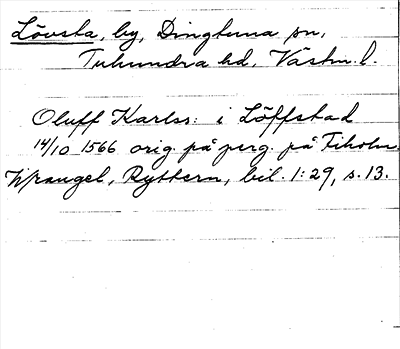 Lövsta, by, Dingtuna sn,
Tuhundra hd, Västm. l.
Oluff Karlss: i Löffstad
14/10 1566 orig. på perg. på Tiholm.
Wrangel, Ryttern, bil. 1:29, s. 13.